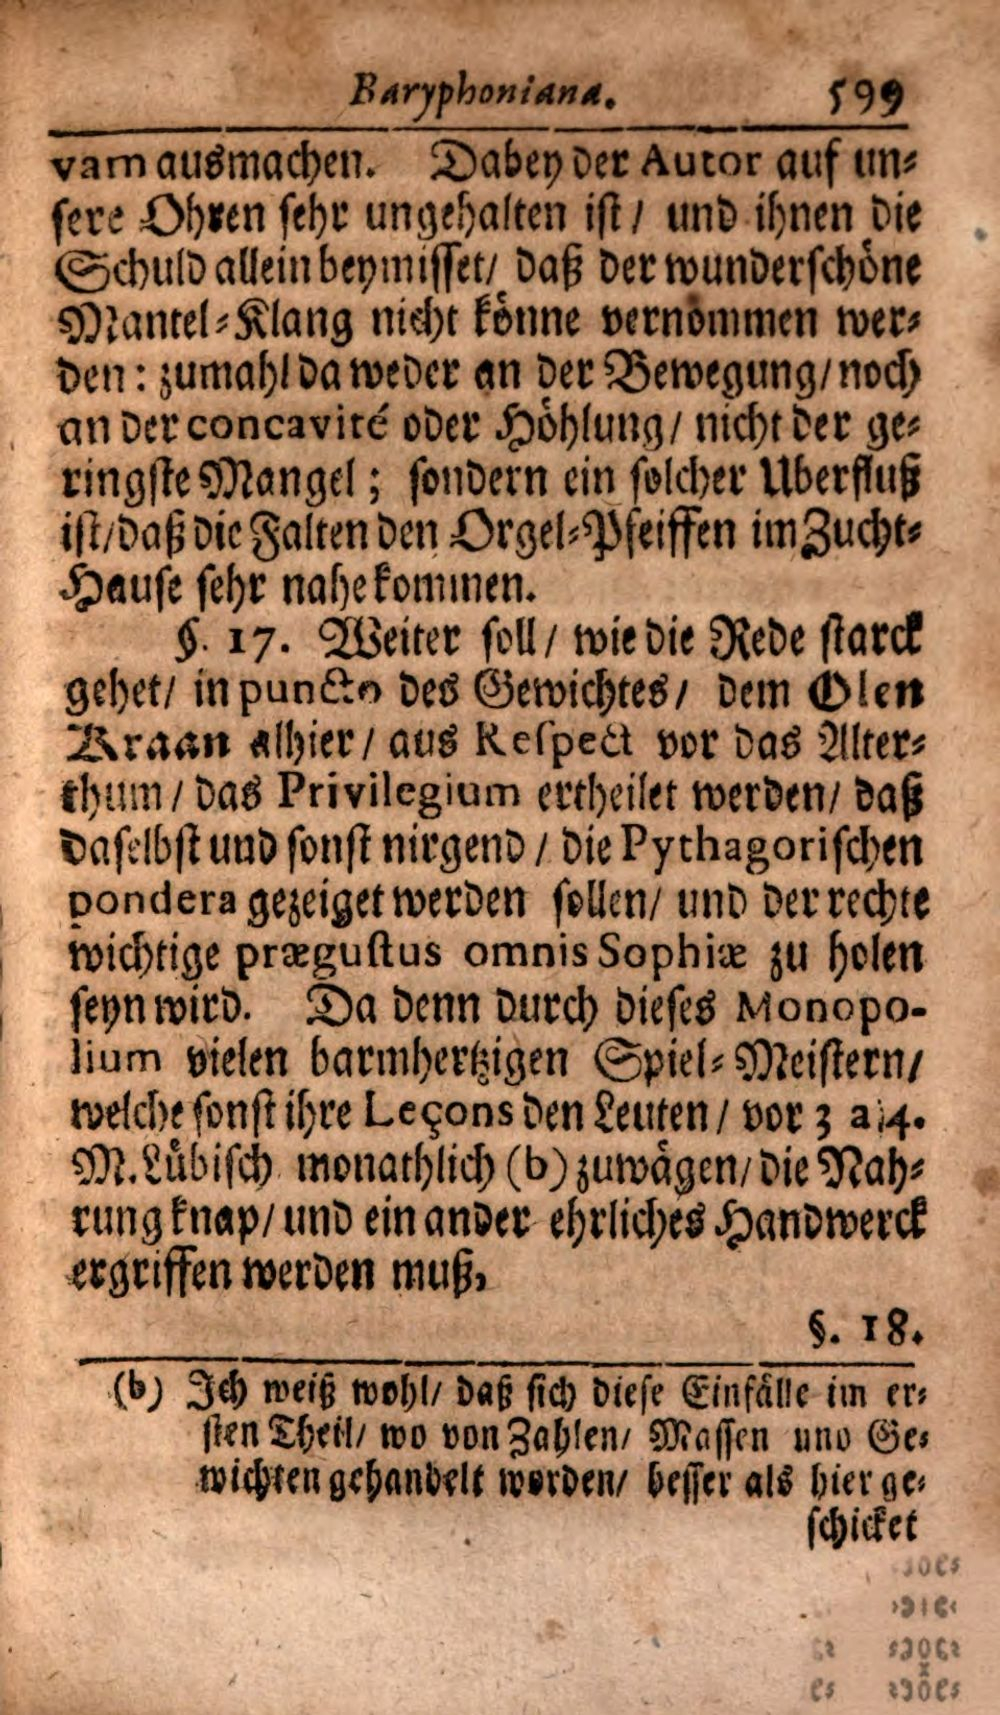 Baryphoniana. 599
vam ausmachen. Dabey der Autor auf un⸗
sere Ohren sehr ungehalten ist / und ihnen die
Schuld allein beymisset / daß der wunderschöne
Mantel⸗Klang nicht könne vernommen wer⸗
den: zumahl da weder an der Bewegung / noch
an der concavité oder Höhlung / nicht der ge⸗
ringste Mangel; sondern ein solcher Uberfluß
ist / daß die Falten den Orgel⸗Pfeiffen im Zucht⸗
Hause sehr nahe kommen.
§. 17. Weiter soll / wie die Rede starck
gehet / in puncto des Gewichtes / dem Olen
Kraan alhier / aus Respect vor das Alter⸗
thum / das Privilegium ertheilet werden / daß
daselbst und sonst nirgend / die Pythagorischen
pondera gezeiget werden sollen / und der rechte
wichtige prægustus omnis Sophiæ zu holen
seyn wird. Da denn durch dieses Monopo-
lium vielen barmhertzigen Spiel⸗Meistern /
welche sonst ihre Leçons den Leuten / vor 3 a 4.
M. Lübisch monathlich (b) zuwägen / die Nah⸗
rung knap / und ein ander ehrliches Handwerck
ergriffen werden muß,
§. 18.
(b) Ich weiß wohl / daß sich diese Einfälle im er⸗
sten Theil / wo von Zahlen / Massen und Ge⸗
wichten gehandelt worden / besser als hier ge⸗
schicket